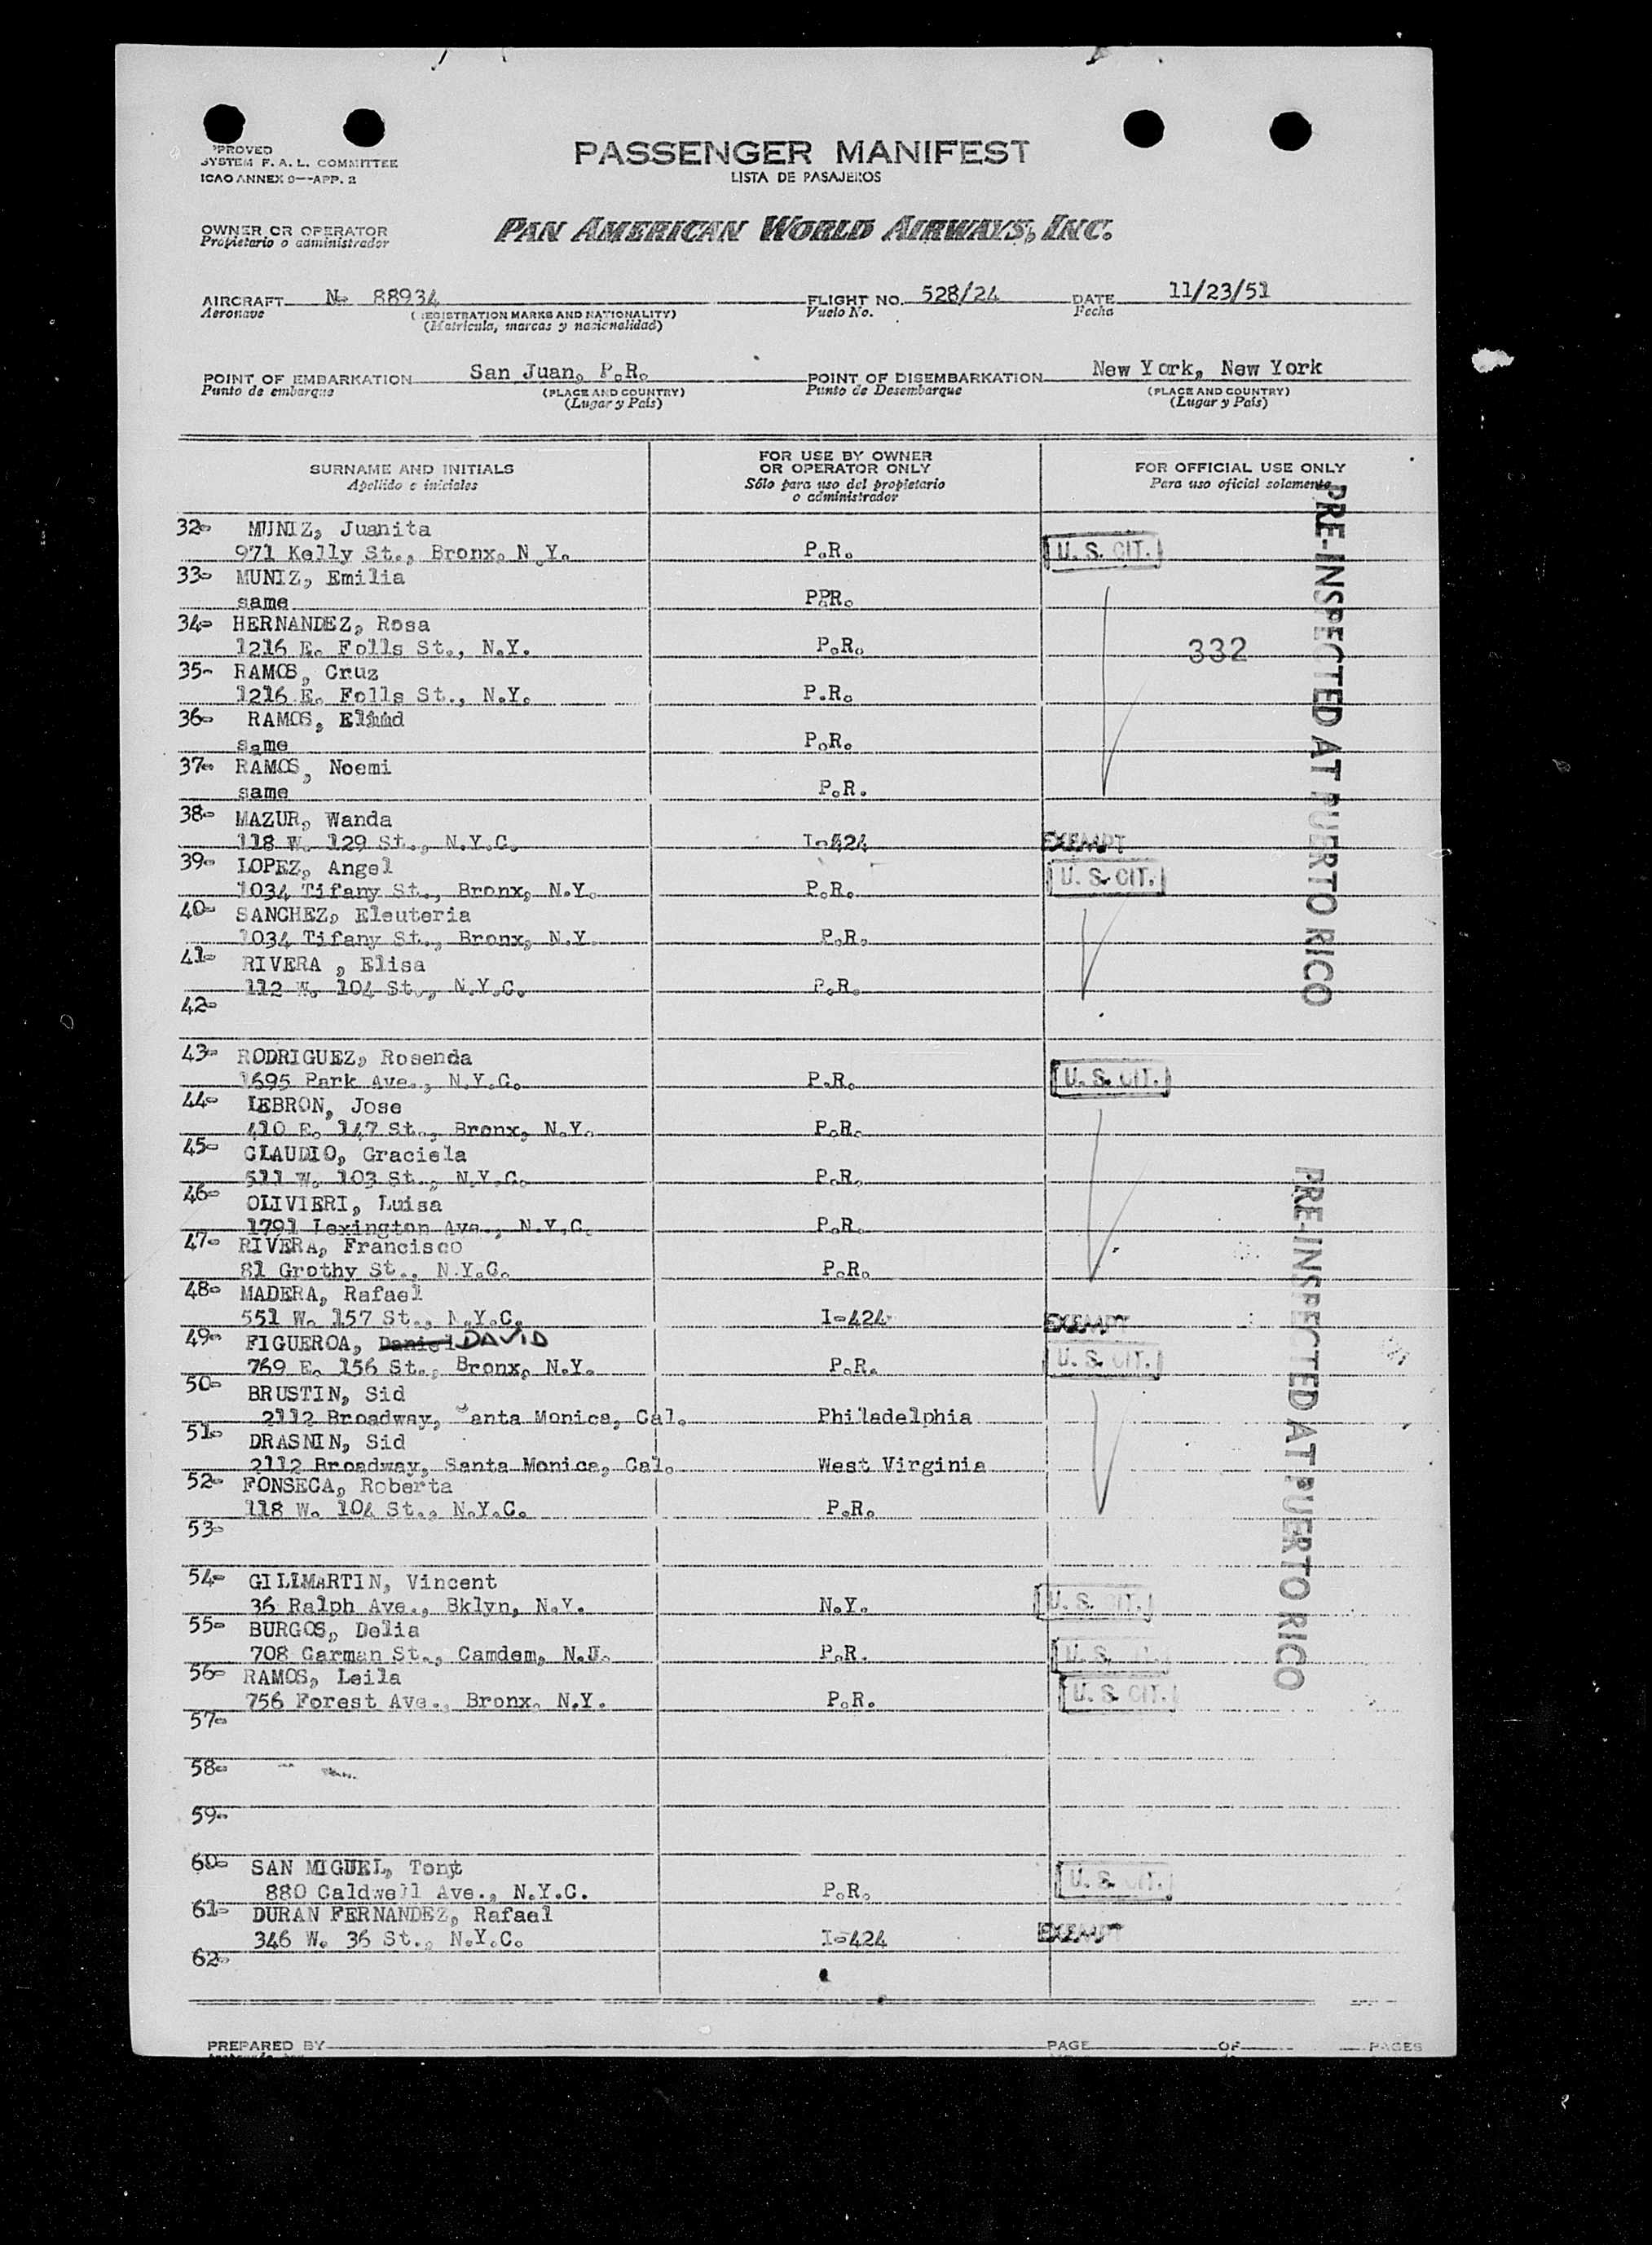 PROVED
SYSTEM F. A. L. COMMITTEE
ICAO ANNEX 9—APP. 2
PASSENGER MANIFEST
LISTA DE PASAJEROS
OWNER OR OPERATOR
Propietario o administrador
PAN AMERICAN WORLD AIRWAYS, INC.
AIRCRAFT N- 88934 FLIGHT NO. 528/24 DATE 11/23/51
Aeronave (REGISTRATION MARKS AND NATIONALITY) Vuelo No. Fecha
(Matricula, marcas y nacionalidad)
POINT OF EMBARKATION San Juan, P.R. POINT OF DISEMBARKATION New York, New York
Punto de embarque (PLACE AND COUNTRY) Punto de Desembarque (PLACE AND COUNTRY)
(Lugar y País) (Lugar y País)
SURNAME AND INITIALS
Apellido e iniciales
FOR USE BY OWNER
OR OPERATOR ONLY
Sólo para uso del propietario
o administrador
FOR OFFICIAL USE ONLY
Para uso oficial solamente
32- MUNIZ, Juanita
971 Kelly St., Bronx, N.Y. P.R. U. S. CIT.
33- MUNIZ, Emilia
same PPR.
34- HERNANDEZ, Rosa
1216 E. Folls St., N.Y. P.R. 332
35- RAMOS, Cruz
1216 E. Folls St., N.Y. P.R.
36- RAMOS,
same P.R.
37- RAMOS, Noemi
same P.R.
38- MAZUR, Wanda
118 W. 129 St., N.Y.C. I-424 EXEMPT
39- LOPEZ, Angel
1034 Tifany St., Bronx, N.Y. P.R. U. S. CIT.
40- SANCHEZ, Eleuteria
1034 Tifany St., Bronx, N.Y. P.R.
41- RIVERA , Elisa
112 W. 104 St., N.Y.C. P.R.
42-
43- RODRIGUEZ, Rosenda
1695 Park Ave., N.Y.C. P.R. U. S. CIT.
44- LEBRON, Jose
410 E. 147 St., Bronx, N.Y. P.R.
45- CLAUDIO, Graciela
511 W. 103 St., N.Y.C. P.R.
46- OLIVIERI, Luisa
1791 Lexington Ave., N.Y.C. P.R.
47- RIVERA, Francisco
81 Grothy St., N.Y.C. P.R.
48- MADERA, Rafael
551 W. 157 St., N.Y.C. I-424 EXEMPT
49- FIGUEROA, Daniel DAVID
769 E. 156 St., Bronx, N.Y. P.R. U. S. CIT.
50- BRUSTIN, Sid
2112 Broadway, Santa Monica, Cal. Philadelphia
51- DRASNIN, Sid
2112 Broadway, Santa Monica, Cal. West Virginia
52- FONSECA, Roberta
118 W. 104 St., N.Y.C. P.R.
53-
54- GILLMARTIN, Vincent
36 Ralph Ave., Bklyn, N.Y. N.Y. U. S. CIT.
55- BURGOS, Delia
708 Garman St., Camdem, N.J. P.R. U. S.
56- RAMOS, Leila
756 Forest Ave., Bronx, N.Y. P.R. U. S. CIT.
57-
58-
59-
60- SAN MIGUEL, Tony
880 Caldwell Ave., N.Y.C. P.R. U. S. CIT.
61- DURAN FERNANDEZ, Rafael
346 W. 36 St., N.Y.C. I-424 EXEMPT
62-
PRE-INSPECTED AT PUERTO RICO
PRE-INSPECTED AT PUERTO RICO
PREPARED BY PAGE OF PAGES